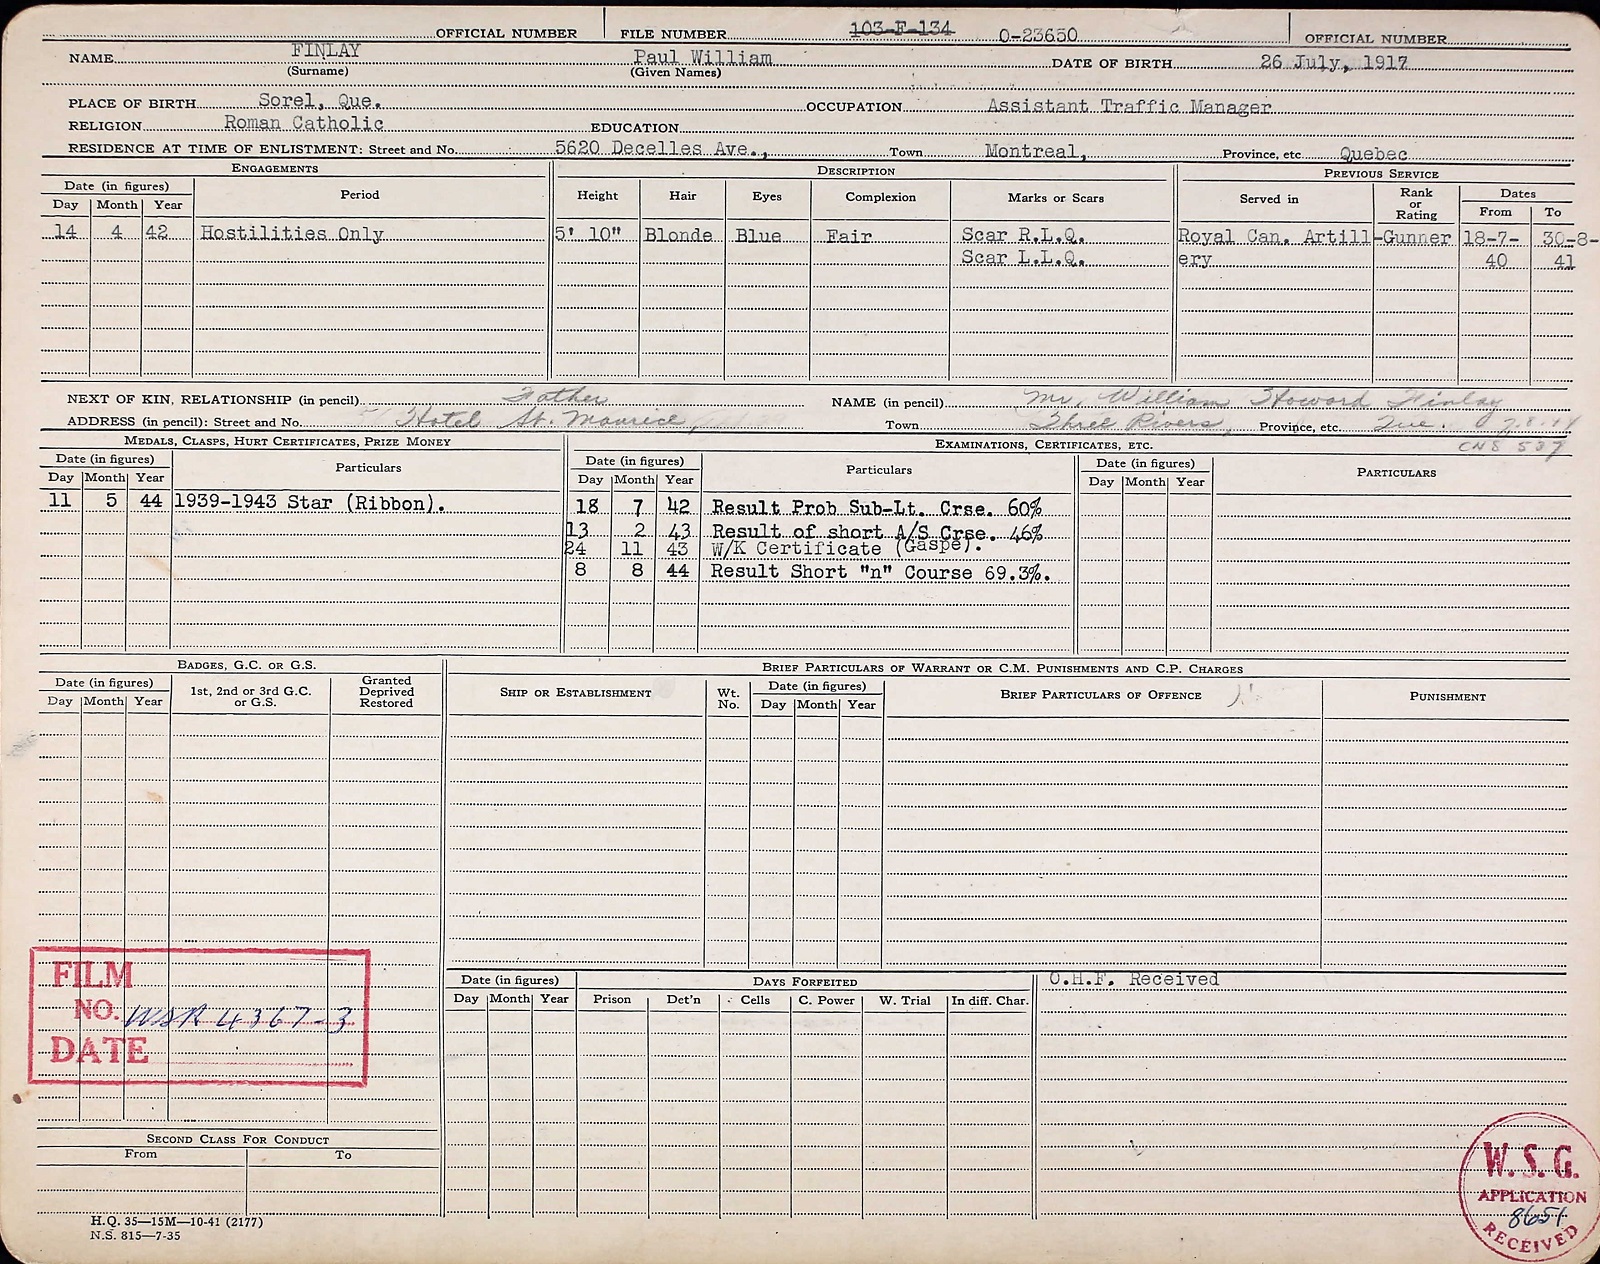 OFFICIAL NUMBER FILE NUMBER 103-F-134 O-23650 OFFICIAL NUMBER
NAME FINLAY Paul William DATE OF BIRTH 26 July, 1917
(Surname) (Given Names)
PLACE OF BIRTH Sorel, Que. OCCUPATION Assistant Traffic Manager
RELIGION Roman Catholic EDUCATION
RESIDENCE AT TIME OF ENLISTMENT: Street and No. 5620 Decelles Ave., Town Montreal, Province, etc Quebec
ENGAGEMENTS DESCRIPTION PREVIOUS SERVICE
Date (in figures) Period Height Hair Eyes Complexion Marks or Scars Served in Rank or Rating Dates
Day Month Year From To
14 4 42 Hostilities Only 5' 10" Blonde Blue Fair Scar R.L.Q. Royal Can. Artill- Gunner 18-7- 30-8-
Scar L.L.Q. ery 40 41
NEXT OF KIN, RELATIONSHIP (in pencil) Father NAME (in pencil) Mr. William Howard Finlay
ADDRESS (in pencil): Street and No. Hotel St. Maurice, Town Three Rivers, Province, etc. Que.
CNS 537
MEDALS, CLASPS, HURT CERTIFICATES, PRIZE MONEY EXAMINATIONS, CERTIFICATES, ETC.
Date (in figures) Particulars Date (in figures) Particulars Date (in figures) PARTICULARS
Day Month Year Day Month Year Day Month Year
11 5 44 1939-1943 Star (Ribbon). 18 7 42 Result Prob Sub-Lt. Crse. 60%
13 2 43 Result of short A/S Crse. 46%
24 11 43 W/K Certificate (Gaspe).
8 8 44 Result Short "n" Course 69.3%.
BADGES, G.C. OR G.S. BRIEF PARTICULARS OF WARRANT OR C.M. PUNISHMENTS AND C.P. CHARGES
Date (in figures) 1st, 2nd or 3rd G.C. or G.S. Granted Deprived Restored SHIP OR ESTABLISHMENT Wt. No. Date (in figures) BRIEF PARTICULARS OF OFFENCE PUNISHMENT
Day Month Year Day Month Year
FILM
NO. WSR 4367-3
DATE
Date (in figures) DAYS FORFEITED O.H.F. Received
Day Month Year Prison Det'n Cells C. Power W. Trial In diff. Char.
SECOND CLASS FOR CONDUCT
From To
H.Q. 35—15M—10-41 (2177)
N.S. 815—7-35
W.S.G.
APPLICATION
8651
RECEIVED